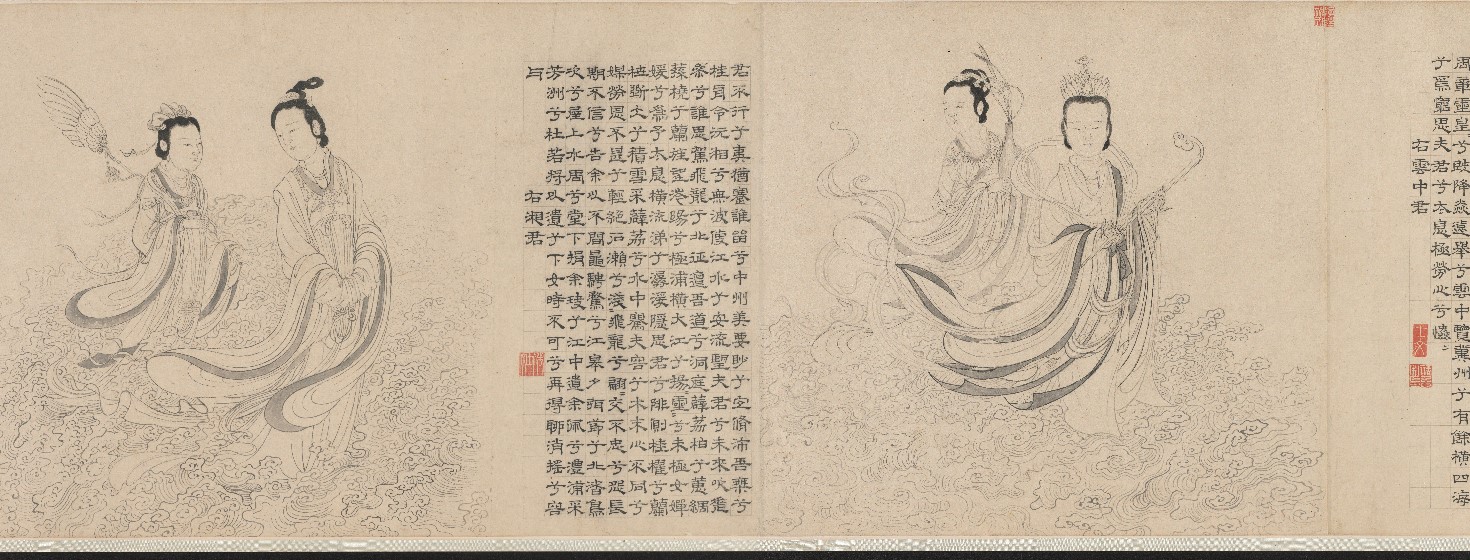 周章靈皇〻兮既降猋遠舉兮雲中覽冀州兮有餘橫四海
兮焉窮思夫君兮太息極勞心兮〻
右雲中君
君不行兮夷猶蹇誰留兮中州美要眇兮宜脩沛吾乘兮
桂舟令沅湘兮無波使江水兮安流望夫君兮未來吹
兮誰思駕飛龍兮北征邅吾道兮洞庭薜荔柏兮蕙綢
蓀橈兮蘭旌望涔陽兮極浦橫大江兮揚靈〻兮未極女嬋
媛兮爲予太息橫流涕兮潺湲隱思君兮陫側桂櫂兮蘭
枻斲冰兮積雪采薜荔兮水中搴夫容兮木末心不同兮
媒勞恩不甚兮輕絕石瀨兮淺〻飛龍兮翩〻交不忠兮怨長
期不信兮告余以不閒鼂騁騖兮江皋夕弭節兮北渚鳥
次兮屋上水周兮堂下捐余玦兮江中遺余佩兮澧浦采
芳洲兮杜若將以遺兮下女時不可兮再得聊消搖兮容
与
右湘君